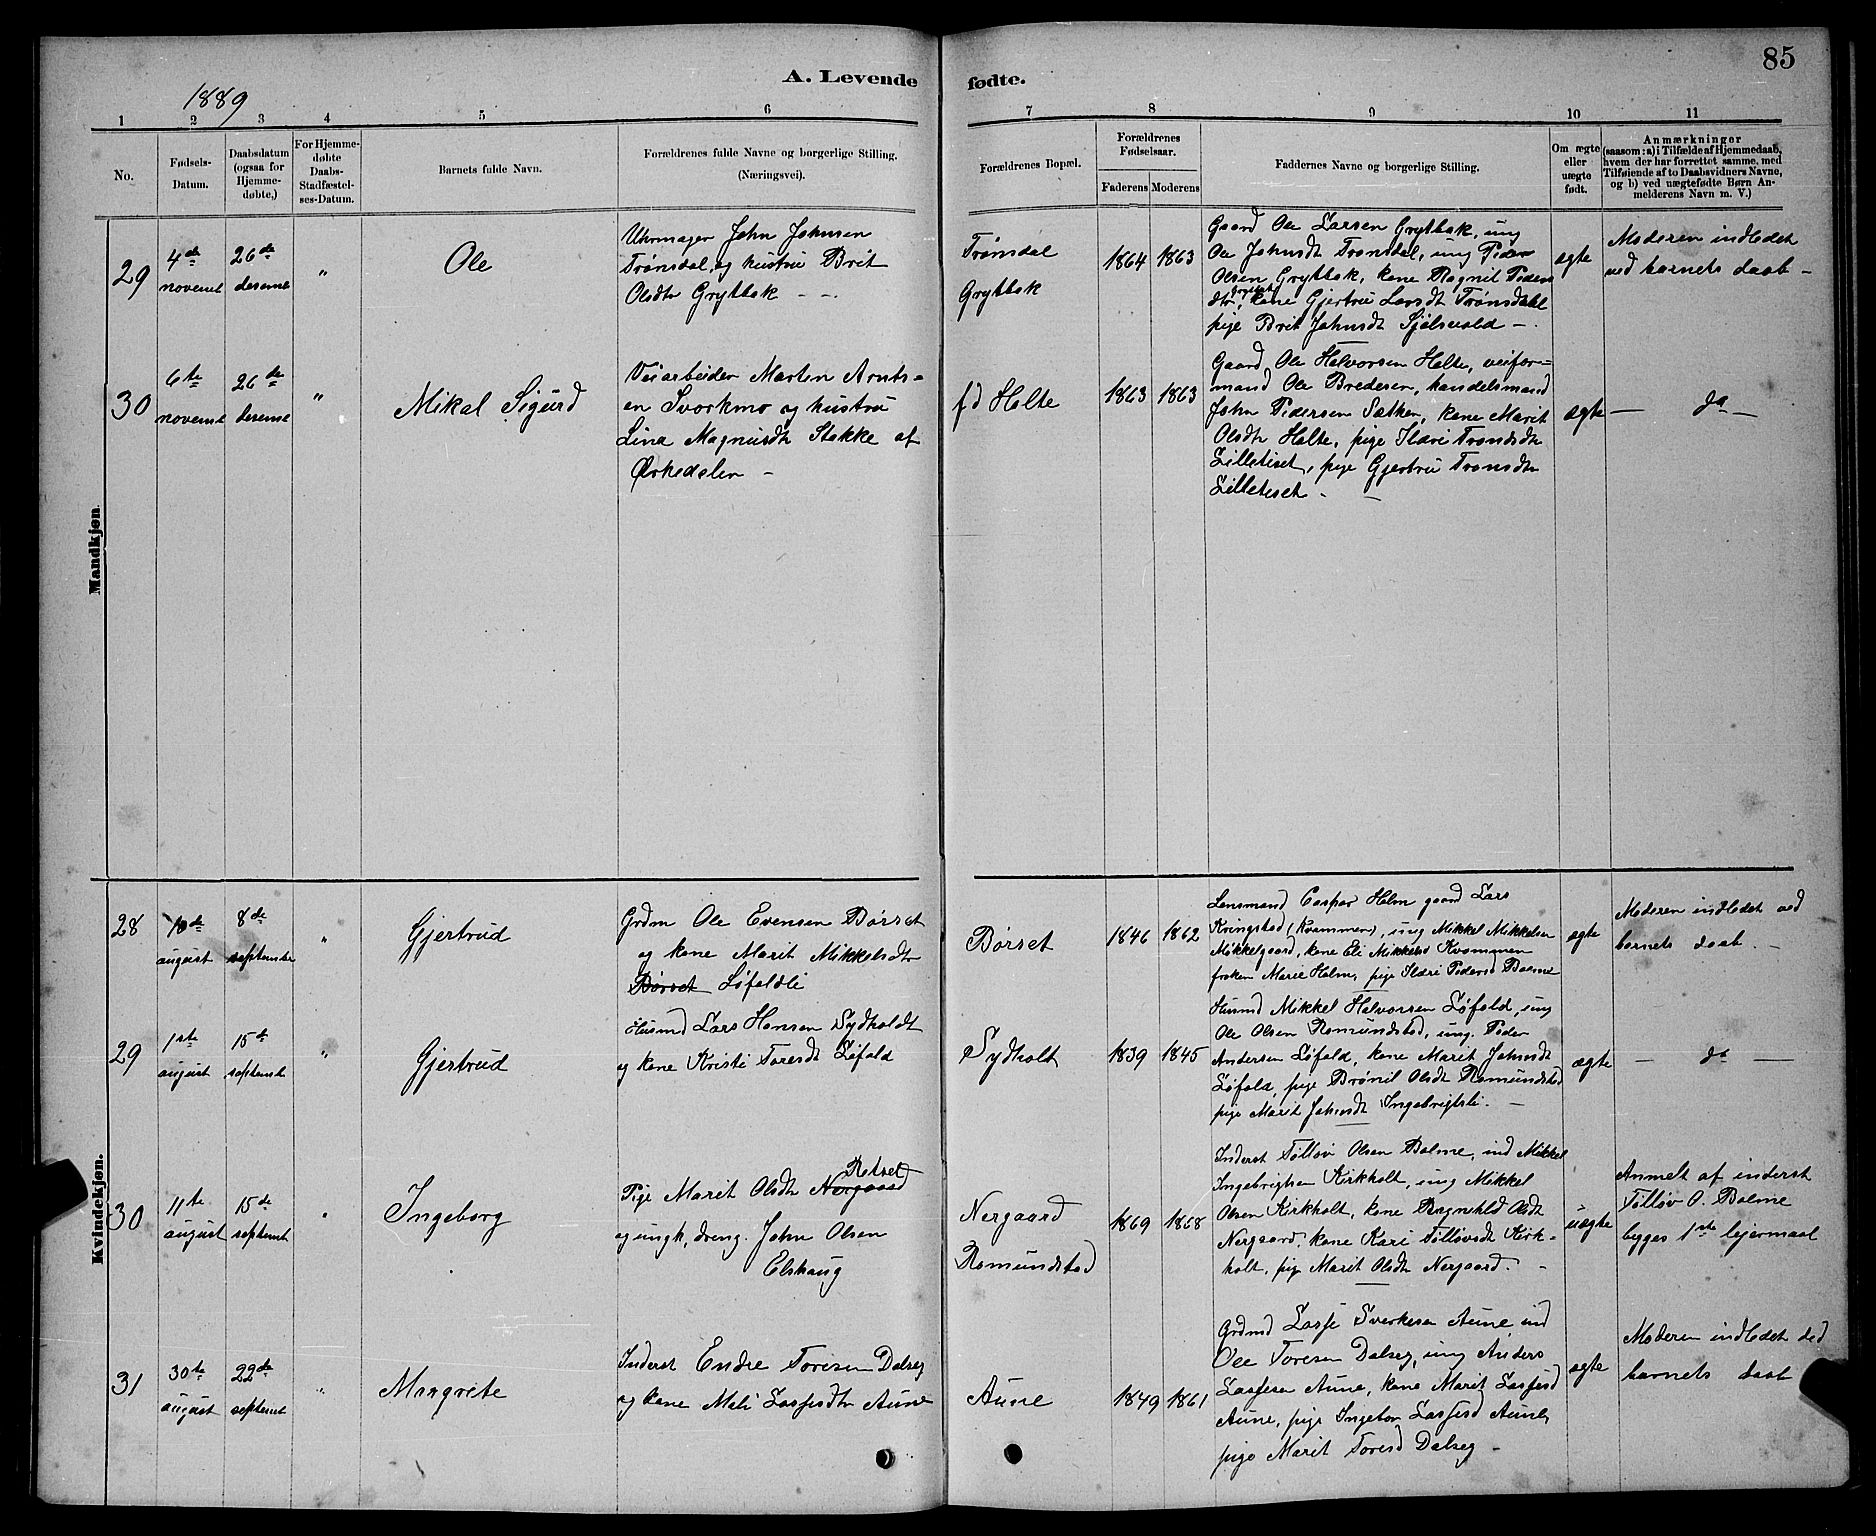 85
1889
A. Levende fødte.
1 2 3 4 5 6 7 8 9 10 11
No.
Fødsels-
Datum.
Daabsdatum
(ogsaa for
Hjemme-
døbte,)
For Hjemme-
døbte
Daabs-
Stadfæstel-
ses-Datum.
Barnets fulde Navn.
Forældrenes fulde Navne og borgerlige Stilling.
(Næringsvei).
Forældrenes Bopæl.
Forældrenes
Fødselsaar.
Faderens Moderens
Faddernes Navne og borgerlige Stilling.
Om ægte
eller
uægte
født.
Anmærkninger
(saasom: a) i Tilfælde af Hjemmedaab,
hvem der har forrettet samme, med
Tilføiende af to Daabsvidners Navne,
og b) ved uægtefødte Børn An-
melderens Navn m. V.)
Mandkjøn.
29
4de
novembr
26de
desembr
"
Ole
Uhrmager John Johnsen
Trønsdal, og hustru Brit
Olsdtr Grytbak - -
Trønsdal
Grytbak
1864 1863
Gaard Ole Larsen Grytbak, ung
Ole Johnsdt Tronsdal, ung Peder
Olsen Grytbak, kone Magnil Peders
dtr Grytbak, kone Gjertru Larsdt Trønsdahl
pige Brit Johnsdt Sjølsvold -
ægte
Moderen indledet
ved barnets daab -
30
6te
novembr
26de
desembr
"
Mikal Sigurd
Veiarbeider Morten Arnts=
en Svorkmo og hustru
Lina Magnusdt Stokke af
Ørkedalen -
fd Holte
1863 1863
Gaard Ole Halvorsen Holte, veifor=
mand Ole Bredesen, handelsmand
John Pedersen Sætker, kone Marit
Olsdtr Holte, pige Ildri Trondsdtr
Lilletiset, pige Gjertru Tronsdtr
Lilletiset -
ægte
- do -
Kvindekjøn.
28
10de
august
8de
septembr
"
Gjertrud
Grdm Ole Evensen Børset
og kone Marit Mikkelsdtr
Børset Løfaldli
Børset
1846 1862
Lensmand Caspar Holm gaard Lars
Kringstad (Kvammen), ung Mikkel Mikkelsen
Mikkelgaard, kone Eli Mikkelsd Kvammen
frøken Marie Holm, pige Ildri Pedersd Bolme
ægte
Moderen indledet ved
barnets daab. -
29
1ste
august
15de
septembr
"
Gjertrud
Husmd Lars Hansen Sydholdt
og kone Kristi Toresdt Løfald
Sydholt
1839 1845
Husmd Mikkel Halvorsen Løfald, ung
Ole Olsen Romundstad, ung. Peder
Andersen Løfald, kone Marit Johnsdt
Løfald, pige Brønil Olsdt Romundstad
pige Marit Johnsdt Ingebrigtsli. -
ægte
- do -
30
11te
august
15de
septembr
"
Ingeborg
Retset
Pige Marit Olsdtr Nergaard
og ungk, dreng. John Olsen
Elshaug
Nergaard
Romundstad
1869 1868
Inderst Tølløv Olsen Bolme, ind Mikkel
Ingebrigtsen Kirkholt, ung Mikkel
Olsen Kirkholt, kone Ragnhild Olsdt
Nergaard, kone Kari Tølløvsdt Kirk=
holt, pige Marit Olsdt Nergaard. -
uægte
Anmelt af inderst
Tølløv O. Bolme
begges 1ste lejermaal
31
30te
august
22de
septembr
"
Margrete
Inderst Endre Toresen Dalseg
og kone Mali Lasfesdtr Aune
Aune
1849 1861
Grdmd Lasse Sverkesen Aune ind
Ole Toresen Dalseg, ung Anders
Lasfesen Aune, kone Marit Lasfesd
Aune, pige Ingebor Lasfesd Aune,
pige Marit Toresd Dalseg -
ægte
Moderen indledet ved
barnets daab